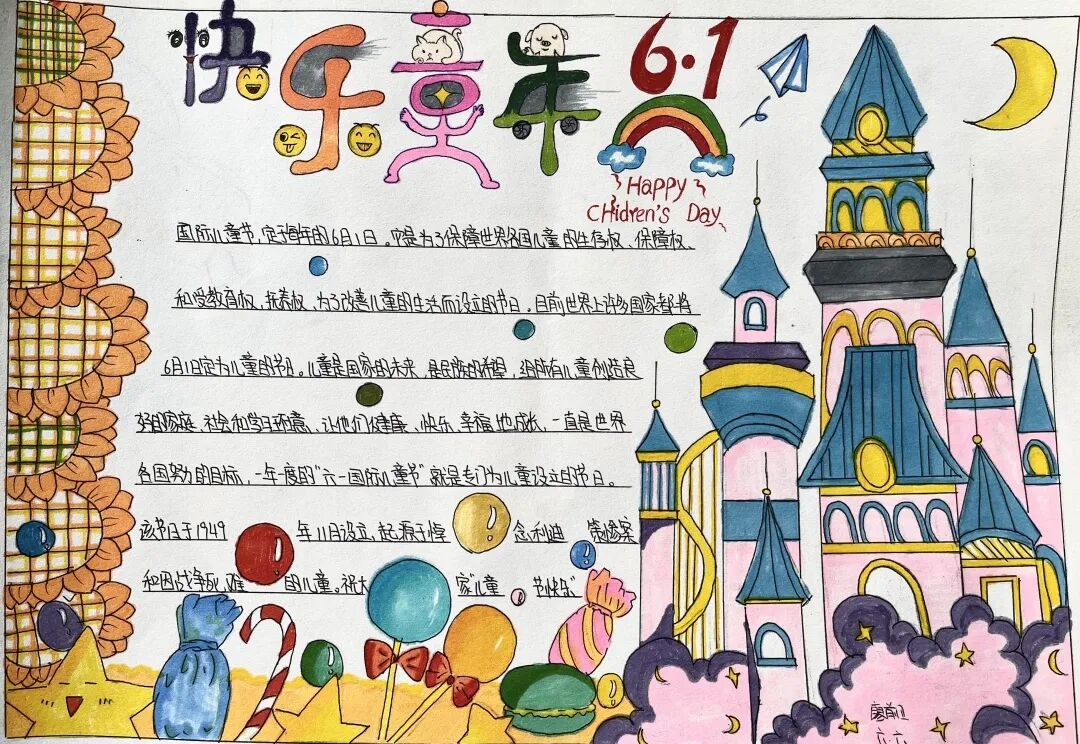 快乐童年 6·1
Happy
Chidren's Day
国际儿童节,定于每年的6月1日。它是为了保障世界各国儿童的生存权、保障权、
和受教育权、抚养权、为了改善儿童的生活而设立的节日。目前世界上许多国家都将
6月1日定为儿童的节日。儿童是国家的未来,是民族的希望,给所有儿童创造良
好的家庭、社会和学习环境、让他们健康、快乐、幸福地成长,一直是世界
各国努力的目标,一年一度的"六一国际儿童节"就是专门为儿童设立的节日。
该节日于1949 年11月设立,起源于悼 念利迪 策惨案
和因战争死难 的儿童。祝大 家"儿童 节快乐"
六·六